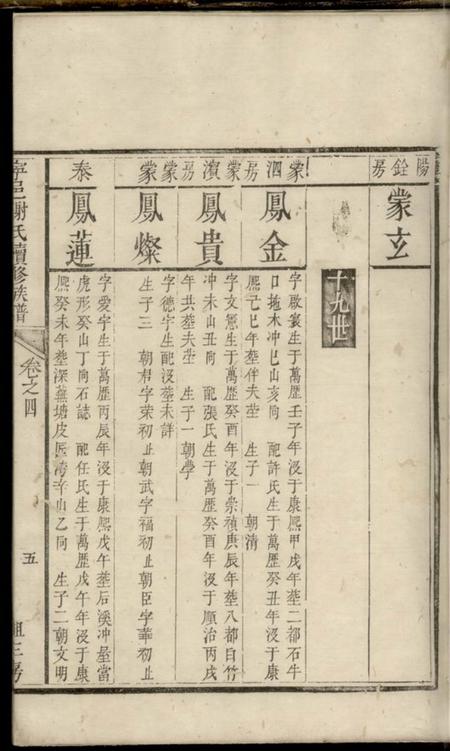 陽銓房
蒙玄
十九世
蒙泗房
鳳金
字啟賓生于萬歷壬子年沒于康熙甲戌年塟二都石牛
口拖木冲巳山亥向 配許氏生于萬歷癸丑年沒于康
熙己巳年塟伴夫塟 生子一 朝清
蒙濱房
鳳貴
字文憲生于萬歷癸酉年沒于崇禎庚辰年塟八都白竹
冲未山丑向 配張氏生于萬歷癸酉年沒于順治丙戌
年共塟夫塋 生子一朝學
蒙
鳳燦
字德宇生配沒塟未詳
生子三 朝君字荣初止朝武字福初止朝臣字華初止
泰
鳳蓮
字愛宇生于萬歷丙辰年沒于康熙戊午年塟后溪冲屋當
虎形癸山丁向石誌 配任氏生于萬歷戊午年沒于康
熙癸未年塟深蕪塘皮匠灣辛山乙向 生子二朝文明
寕邑謝氏續修族譜
卷之四
五
祖三房